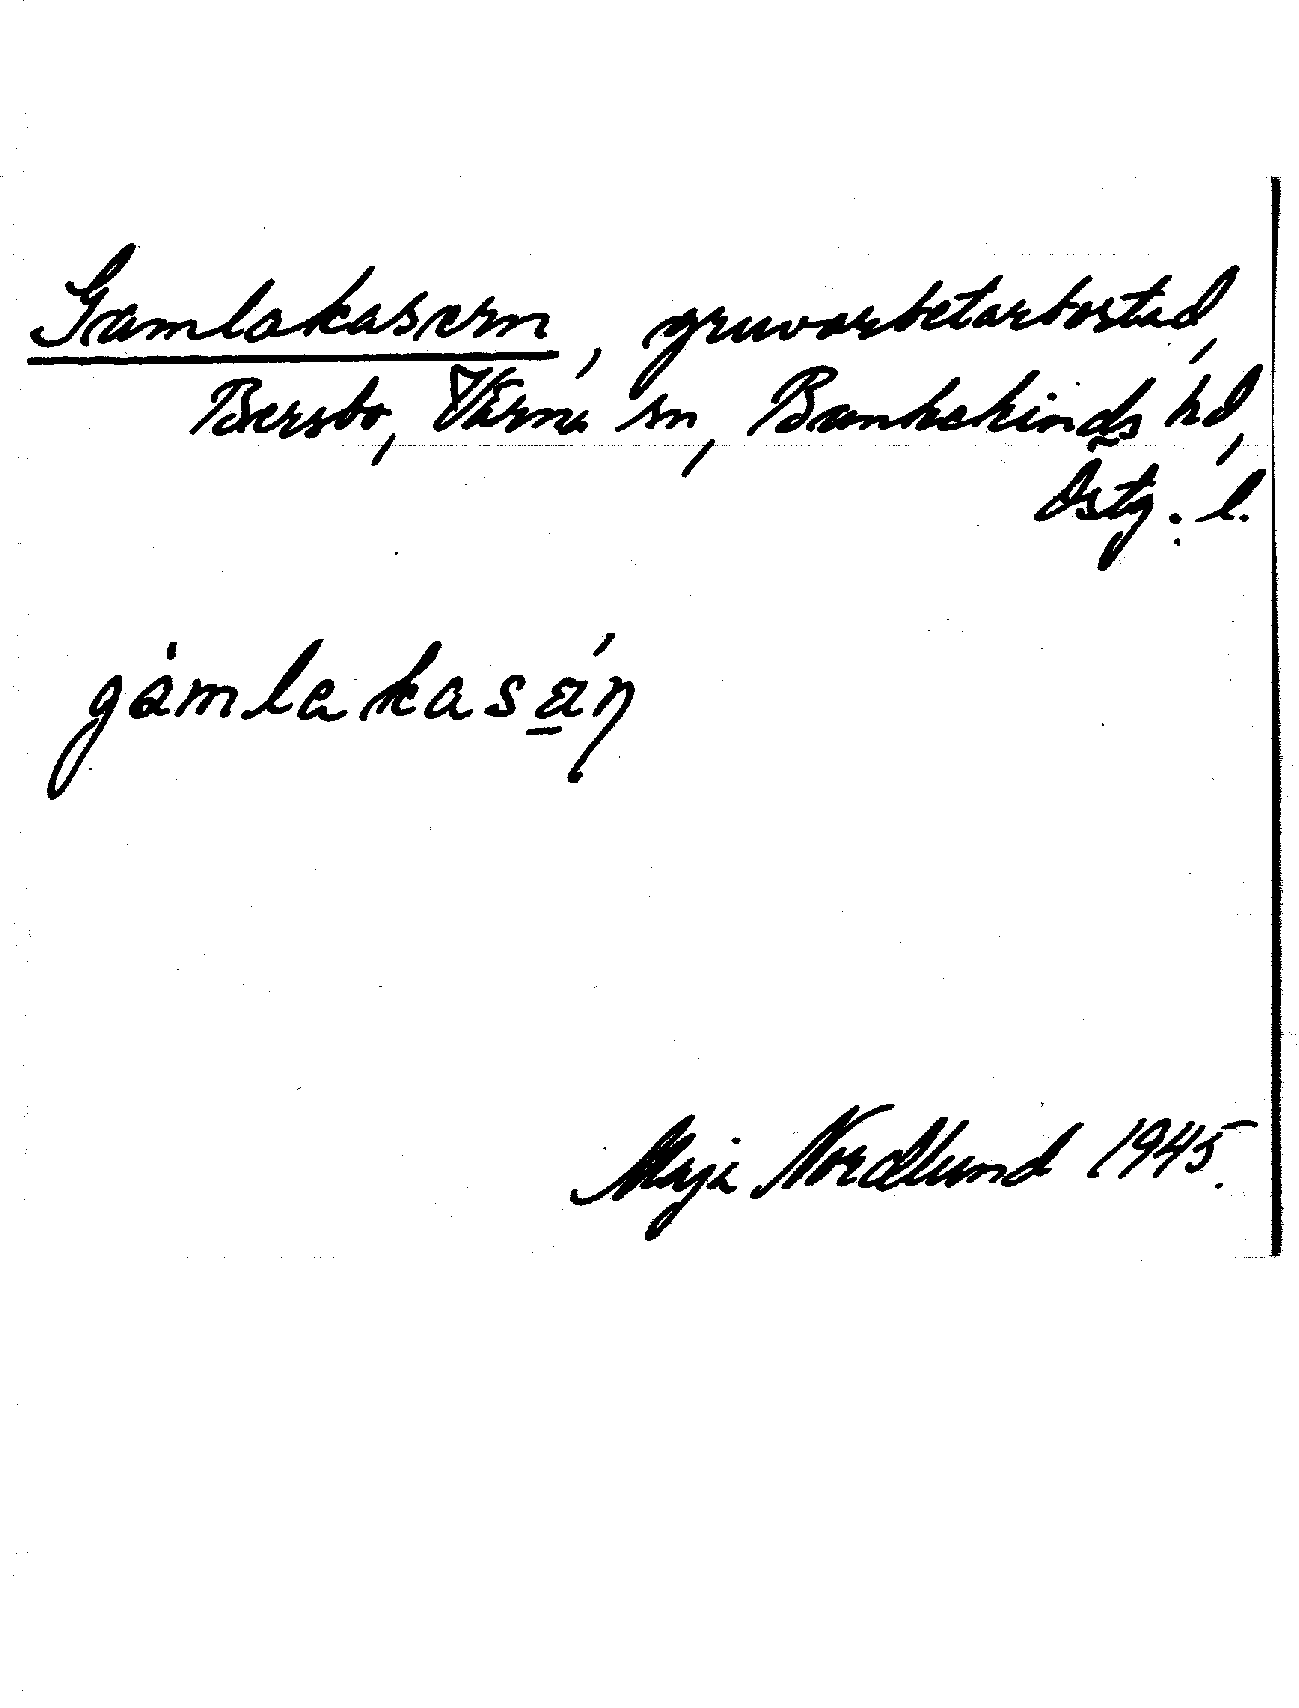 Gamlakasern, gruvarbetarbostad,
Bersbo, Värna sn, Bankekinds hd,
Östg. l.
gàmlakasǽ̱ɳ
Maja Nordlund 1945.